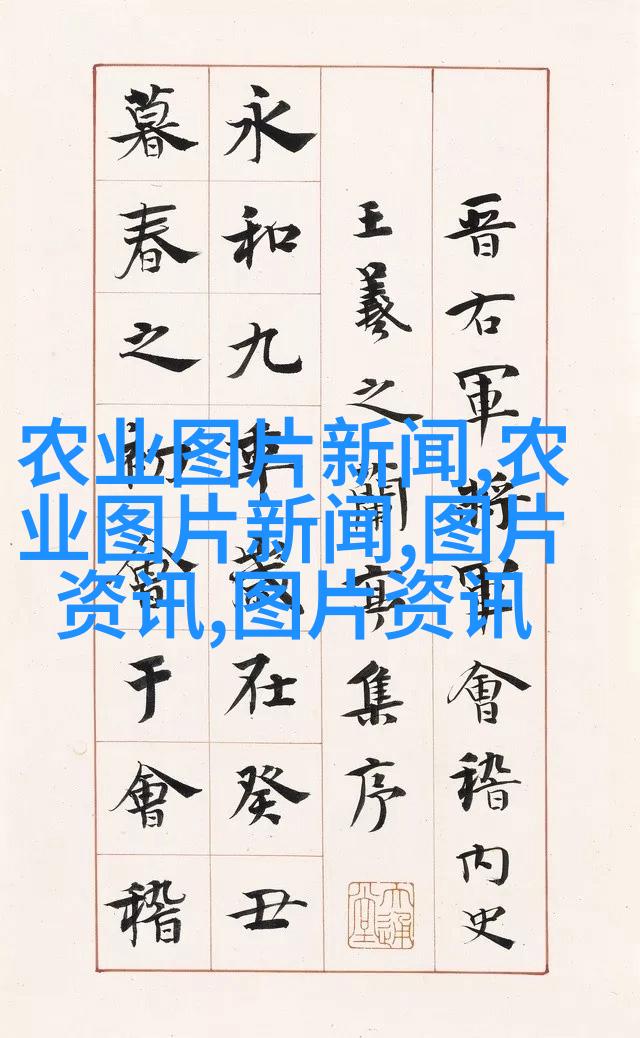 晋右軍將軍會稽内史
王羲之蘭亭集序
永和九年歲在癸丑
暮春之初會于會稽
农业图片新闻,农
业图片新闻,图片
资讯,图片资讯